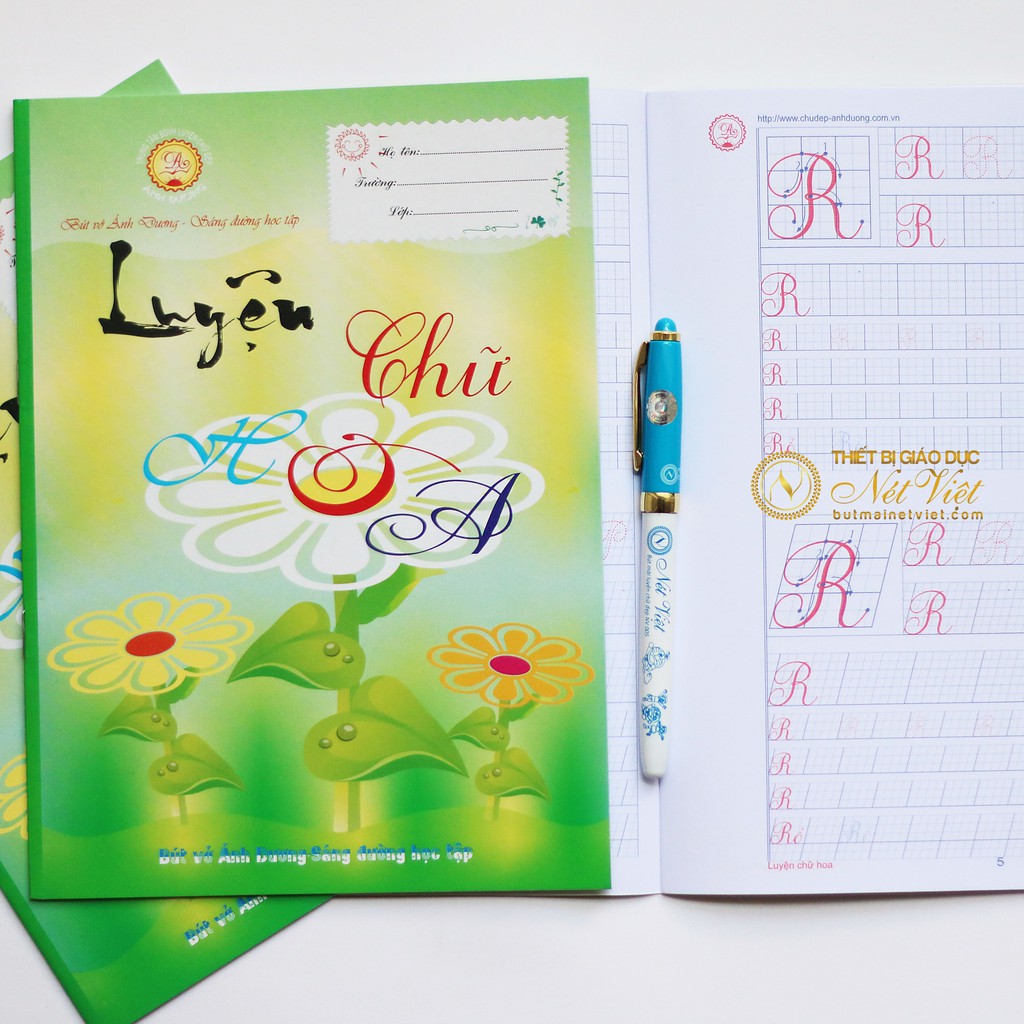 ÁNH DƯƠNG
Họ tên:
Trường:
Lớp:
Bút vở Ánh Dương - Sáng đường học tập
Luyện
Chữ
HOA
Bút vở Ánh Dương-Sáng đường học tập
Bút vở Án
Nét Việt
Bút mài luyện chữ đẹp
http://www.chudep-anhduong.com.vn
R R R
R
R
R
R
R
Rồ
THIẾT BỊ GIÁO DỤC
Nét Việt
butmainetviet.com
R R R
R
R
R
R
R
Rồ
Luyện chữ hoa
5